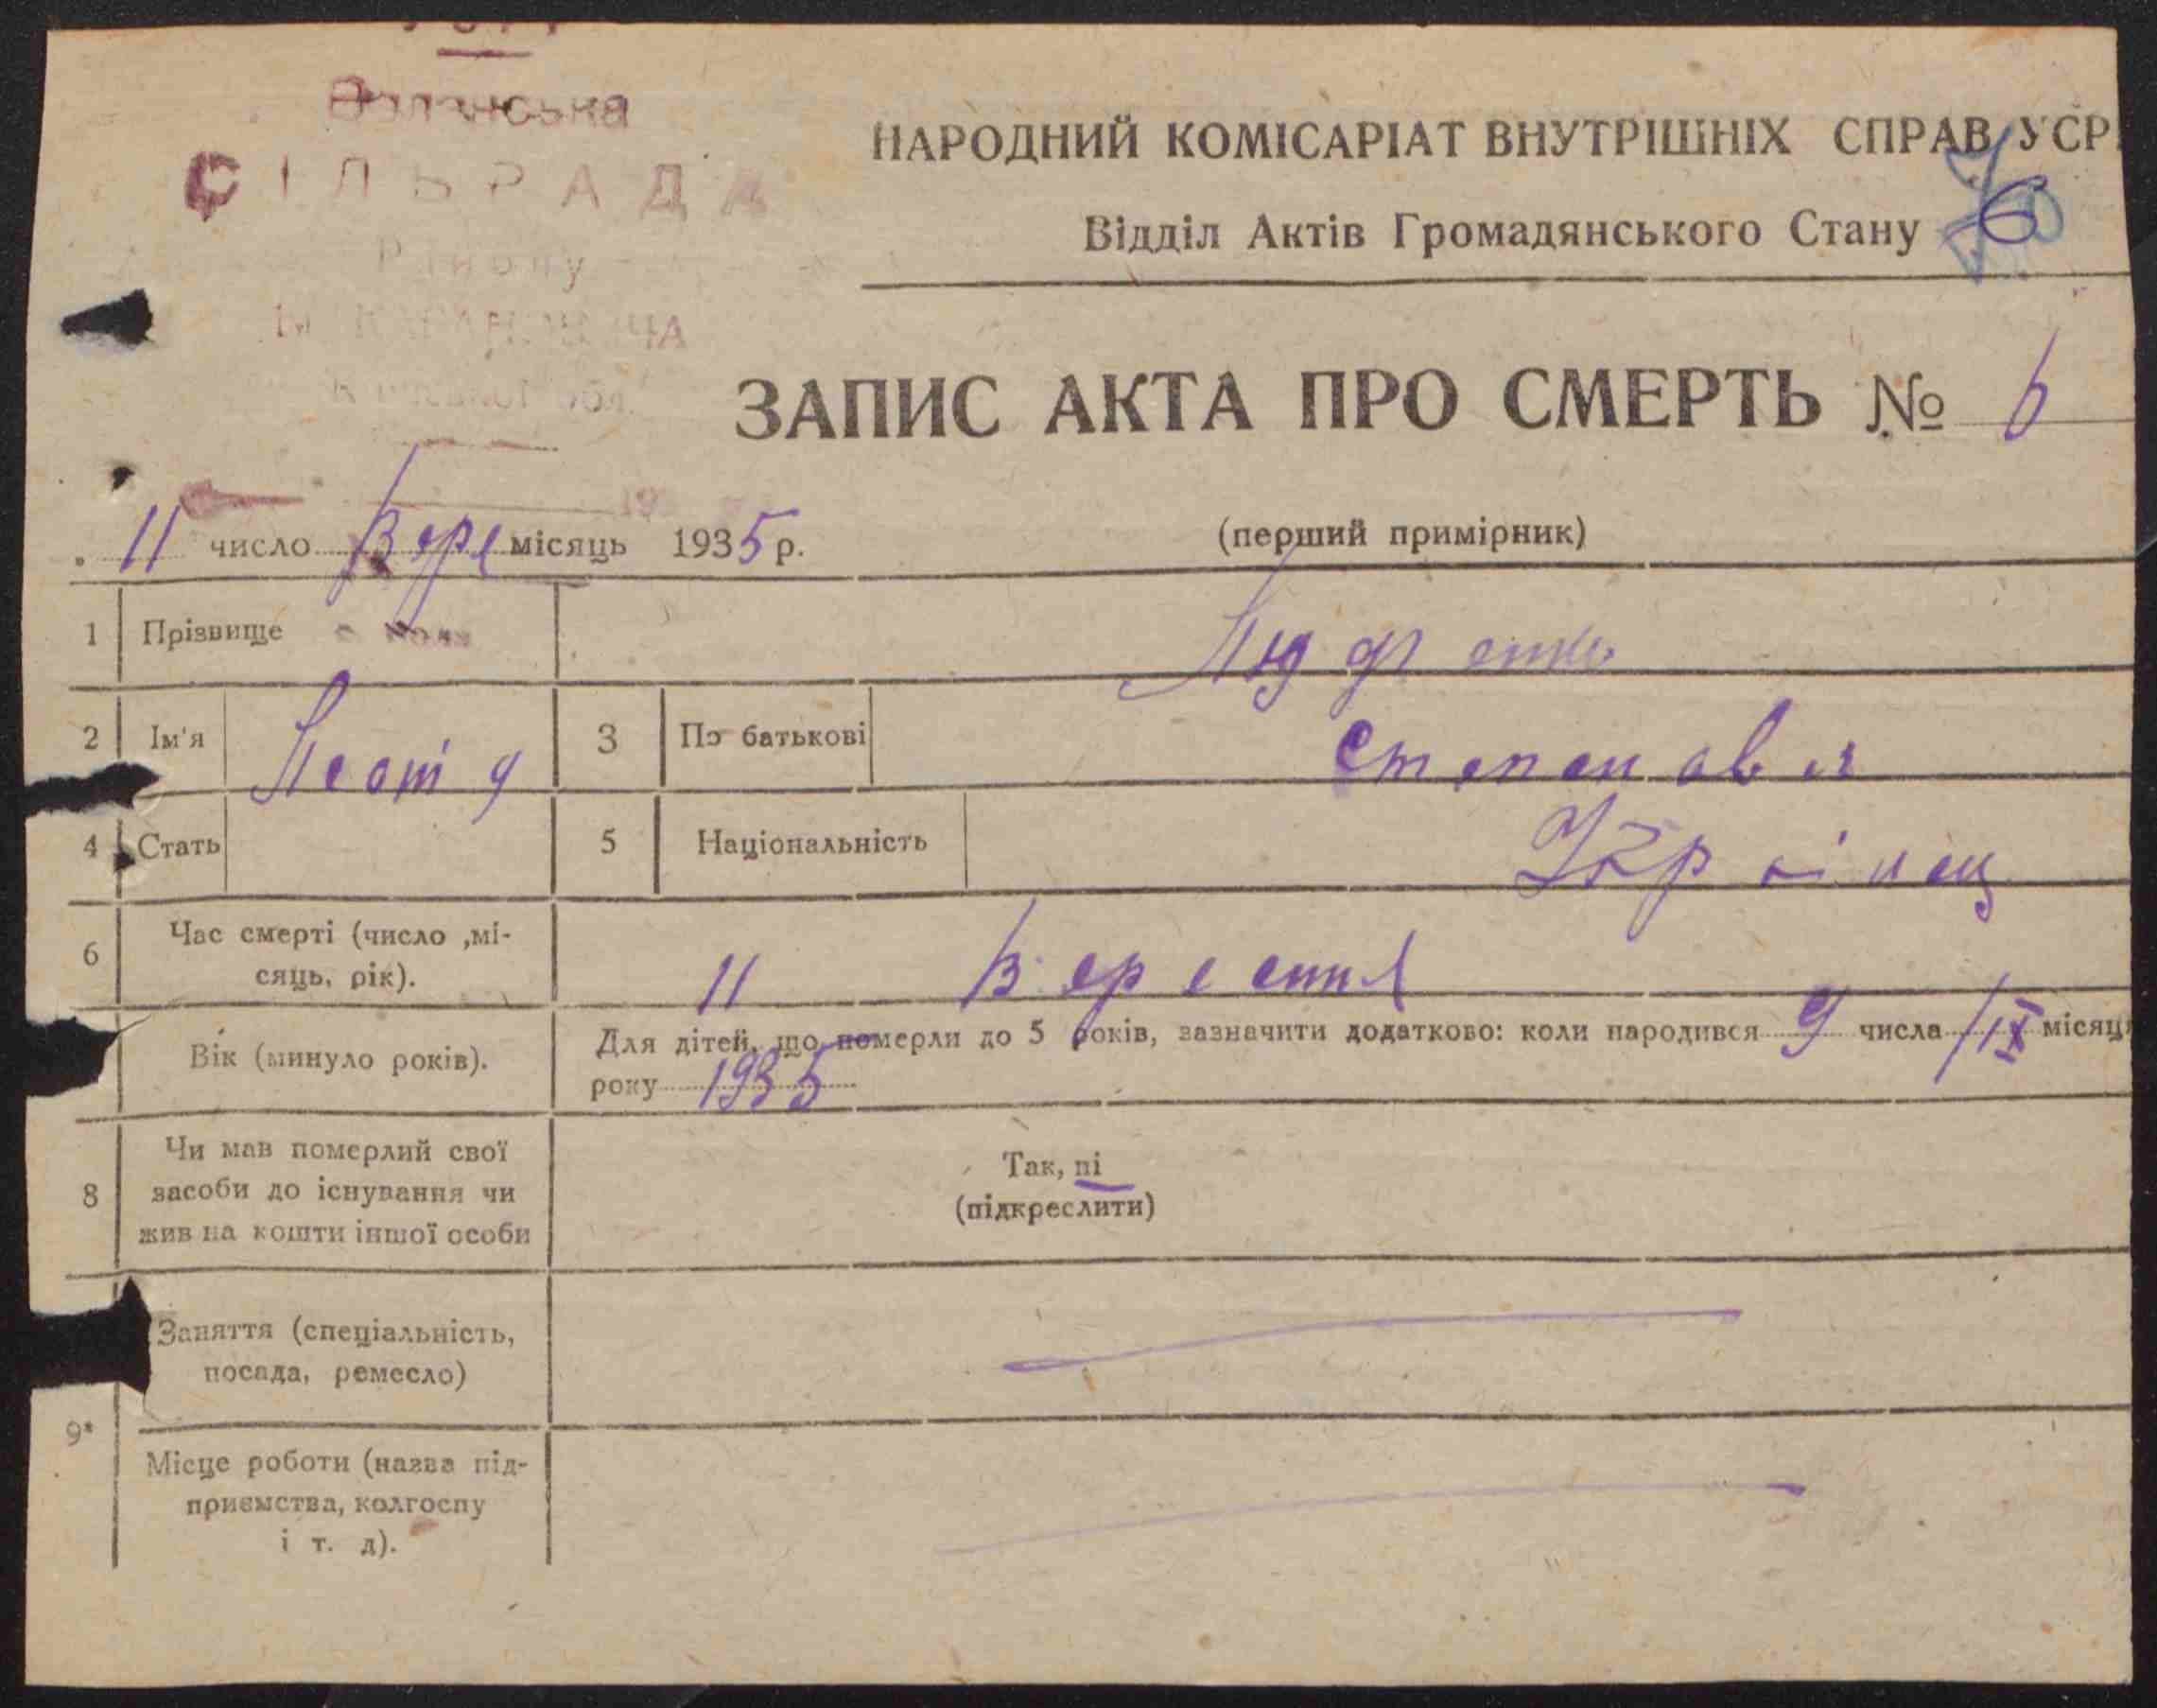 СІЛЬРАДА
Району
НАРОДНИЙ КОМІСАРІАТ ВНУТРІШНІХ СПРАВ УСР
Відділ Актів Громадянського Стану
ЗАПИС АКТА ПРО СМЕРТЬ № 6
11 число Вере місяць 1935 р.
(перший примірник)
1 Прізвище
2 Ім'я 3 По батькові Степанов
4 Стать 5 Національність Українец
6 Час смерті (число ,мі-
сяць, рік).
11 Верестня
Вік (минуло років).
Для дітей, що померли до 5 років, зазначити додатково: коли народився 9 числа IX місяця
року 1935
8 Чи мав померлий свої
засоби до існування чи
жив на кошти іншої особи
Так, ні
(підкреслити)
9*
Заняття (спеціальність,
посада, ремесло)
Місце роботи (назва під-
приємства, колгоспу
і т. д).